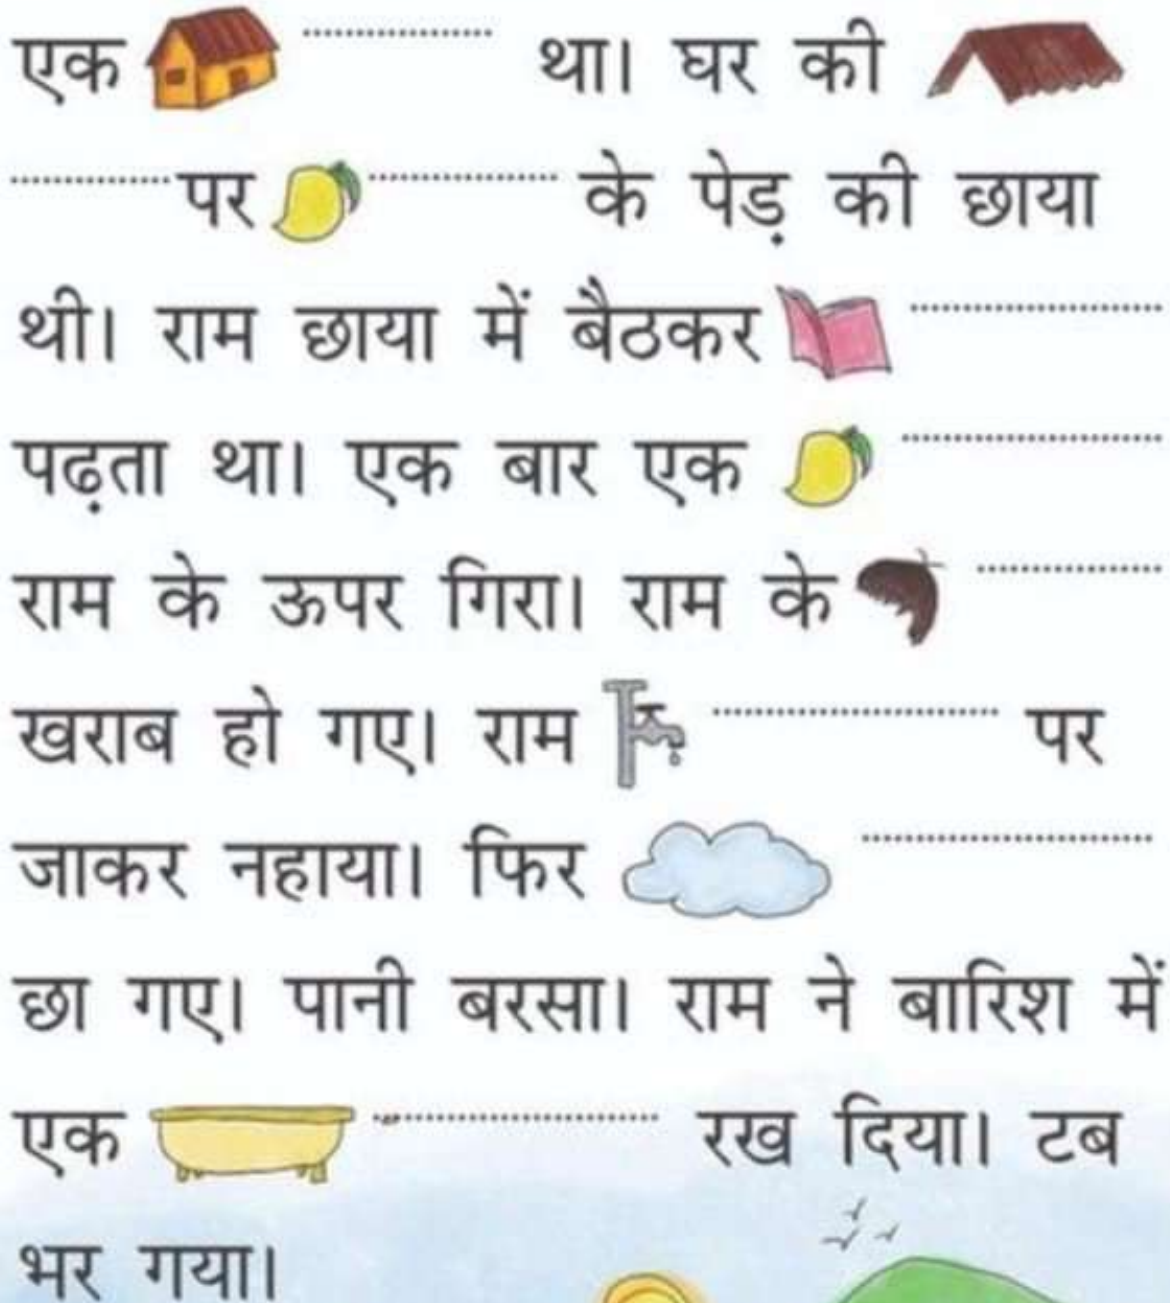 एक ................ था। घर की
................ पर ................ के पेड़ की छाया
थी। राम छाया में बैठकर ................
पढ़ता था। एक बार एक ................
राम के ऊपर गिरा। राम के ................
खराब हो गए। राम ................ पर
जाकर नहाया। फिर ................
छा गए। पानी बरसा। राम ने बारिश में
एक ................ रख दिया। टब
भर गया।